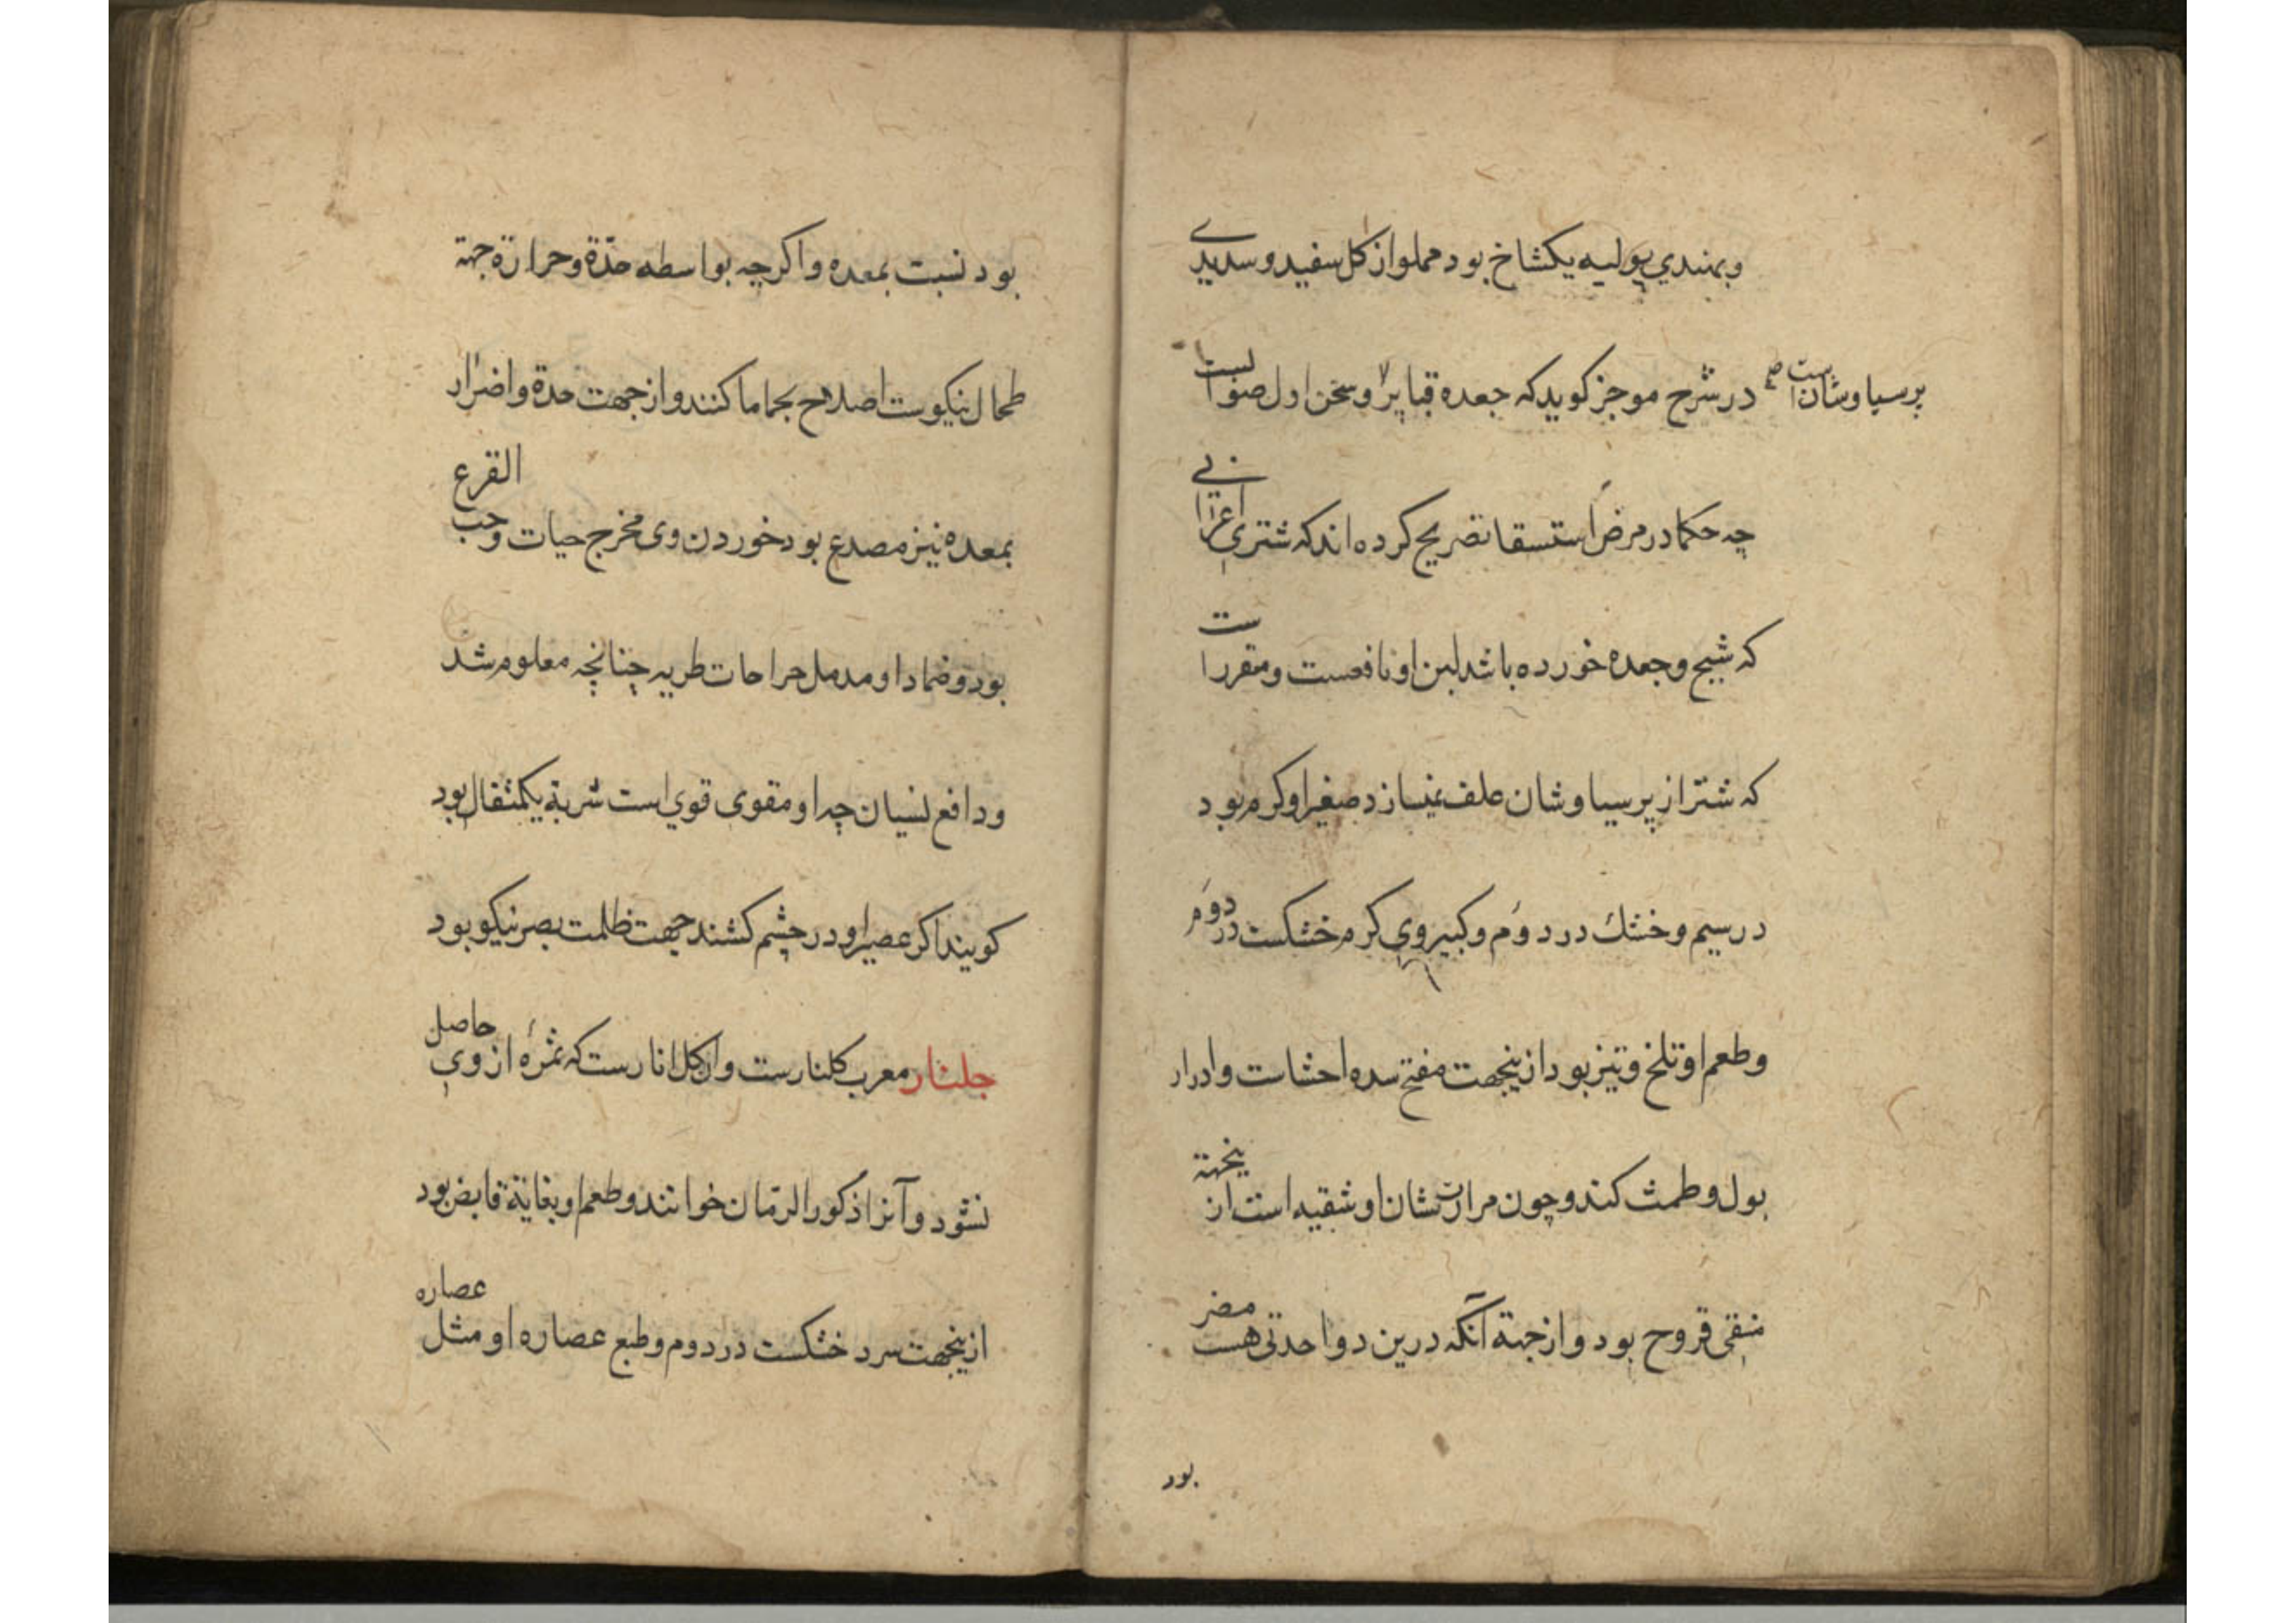 وبهندي پوليه يكشاخ بود مملو از كل سفيد و سديدي
پرسیاوشانست صح
در شرح موجز كويد كه جعده قبا پر و سخن اول صوابست
چه حكما در مرض استسقا تصريح كرده اند كه شتری اعرابی
كه شيح و جعده خورده باشد لبن او نافعست و مقررا ست
كه شتر از پرسیاوشان علف نمیسازد صغیر او كرم بود
در سیم و خشك در دوم و كبیر وی كرم خشكست در دوم
و طعم او تلخ و تیز بود ازینجهت مفتح سده احشاست و ادرار
بول و طمث كند و چون مرارتشان او شقیه است ازینجهة
منقی قروح بود و از جهة آنكه درین دوا حدتی هست مضر
بود
بود نسبت بمعده و اكرچه بواسطه حدّة و حرارة جهة
طحال نیكوست اصلاح بحماما كنند و از جهت حدة و اضرار
بمعده نیز مصدع بود خوردن وی مخرج حیات و حب القرع
بود و ضمادا و مدمل جراحات طریه چنانچه معلوم شد
و دافع نسیان چه او مقوی قوی است شربة یكمثقال بود
كویند اكر عصیر او در چشم كشند جهت ظلمت بصر نیكو بود
جلنار معرب كلنارست و آن كل انارست كه ثمره از وی حاصل
نشود و آنرا ذكور الرمّان خوانند و طعم او بغایة قابض بود
ازینجهت سرد خشكست در دوم و طبع عصاره او مثل عصاره